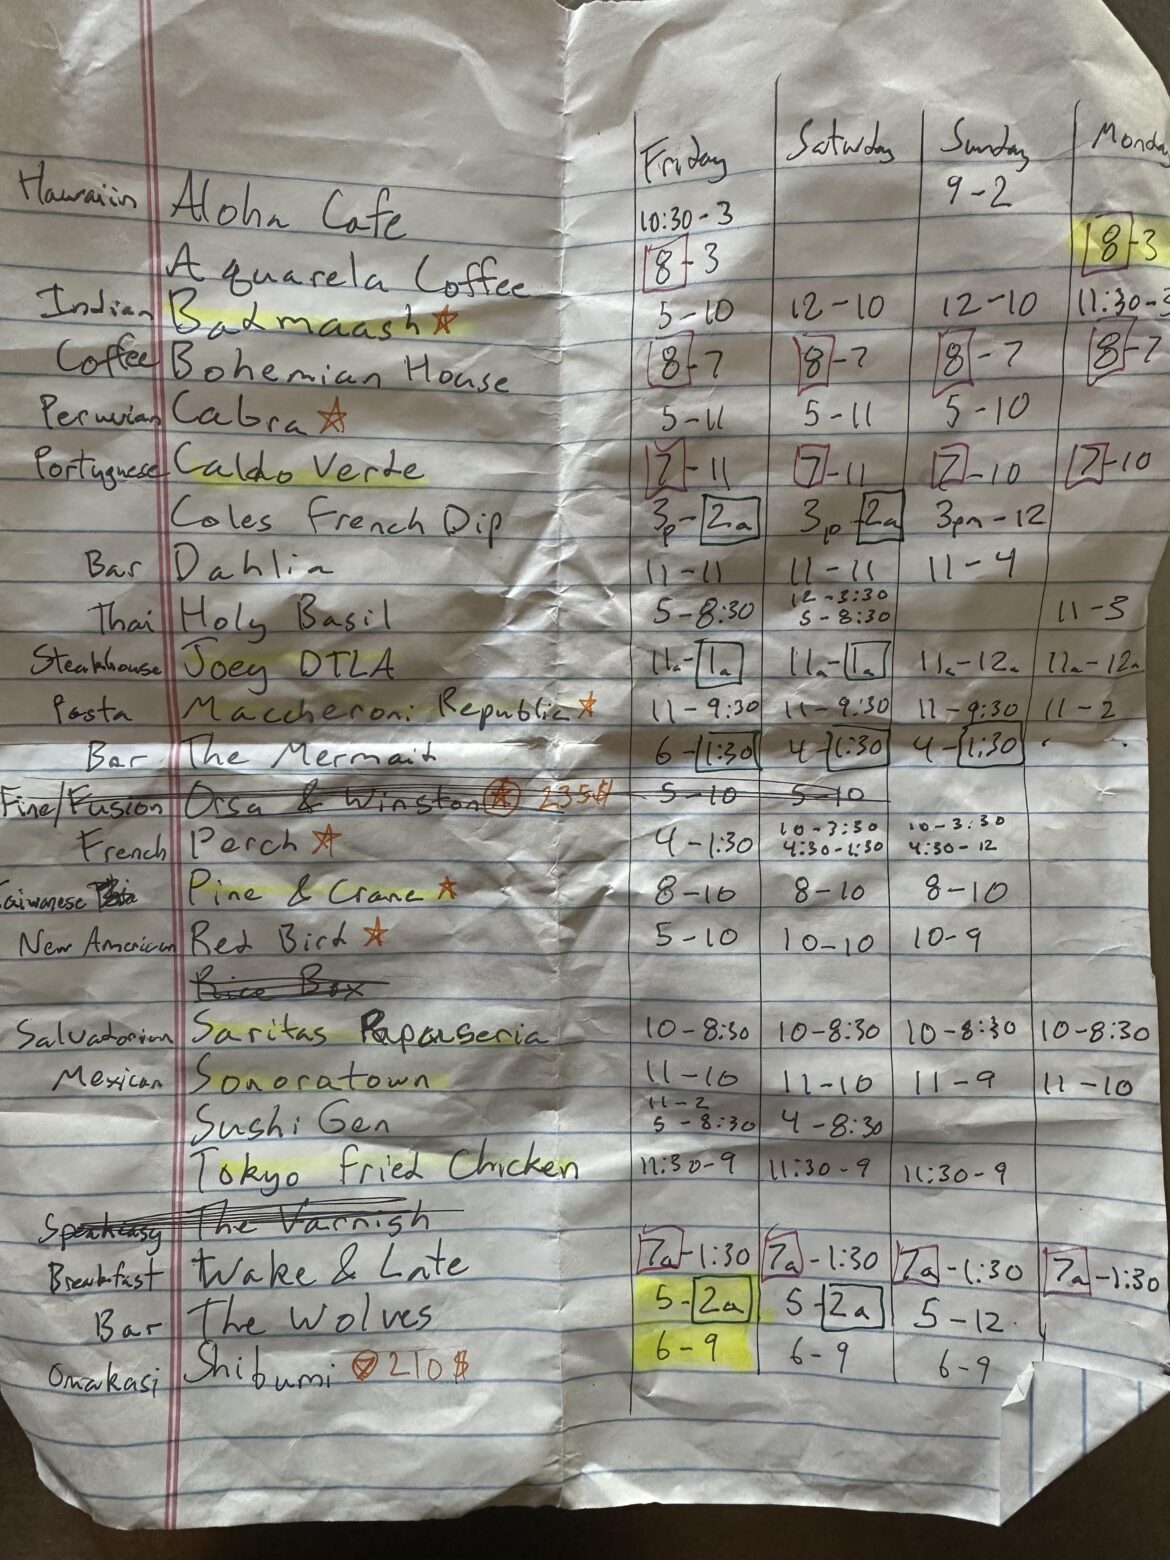 Friday Saturday Sunday Monday
Hawaiin Aloha Cafe 10:30-3 9-2
Aquarela Coffee 8-3 8-3
Indian Badmaash 5-10 12-10 12-10 11:30-3
Coffee Bohemian House 8-7 8-7 8-7 8-7
Peruvian Cabra 5-11 5-11 5-10
Portuguese Caldo Verde 7-11 7-11 7-10 7-10
Coles French Dip 3p-2a 3p-2a 3pm-12
Bar Dahlia 11-11 11-11 11-4
Thai Holy Basil 5-8:30 12-3:30 5-8:30 11-3
Steakhouse Joey DTLA 11a-1a 11a-1a 11a-12a 11a-12a
Pasta Maccheroni Republic 11-9:30 11-9:30 11-9:30 11-2
Bar The Mermait 6-1:30 4-1:30 4-1:30
Fine/Fusion Orsa & Winston 235$ 5-10 5-10
French Perch 4-1:30 10-3:30 4:30-1:30 10-3:30 4:30-12
Taiwanese Pine & Crane 8-10 8-10 8-10
New American Red Bird 5-10 10-10 10-9
Rice Box
Salvadorian Saritas Papuseria 10-8:30 10-8:30 10-8:30 10-8:30
Mexican Sonoratown 11-10 11-10 11-9 11-10
Sushi Gen 11-2 5-8:30 4-8:30
Tokyo Fried Chicken 11:30-9 11:30-9 11:30-9
Speakeasy The Varnish
Breakfast Wake & Late 7a-1:30 7a-1:30 7a-1:30 7a-1:30
Bar The Wolves 5-2a 5-2a 5-12
Omakasi Shibumi 210$ 6-9 6-9 6-9